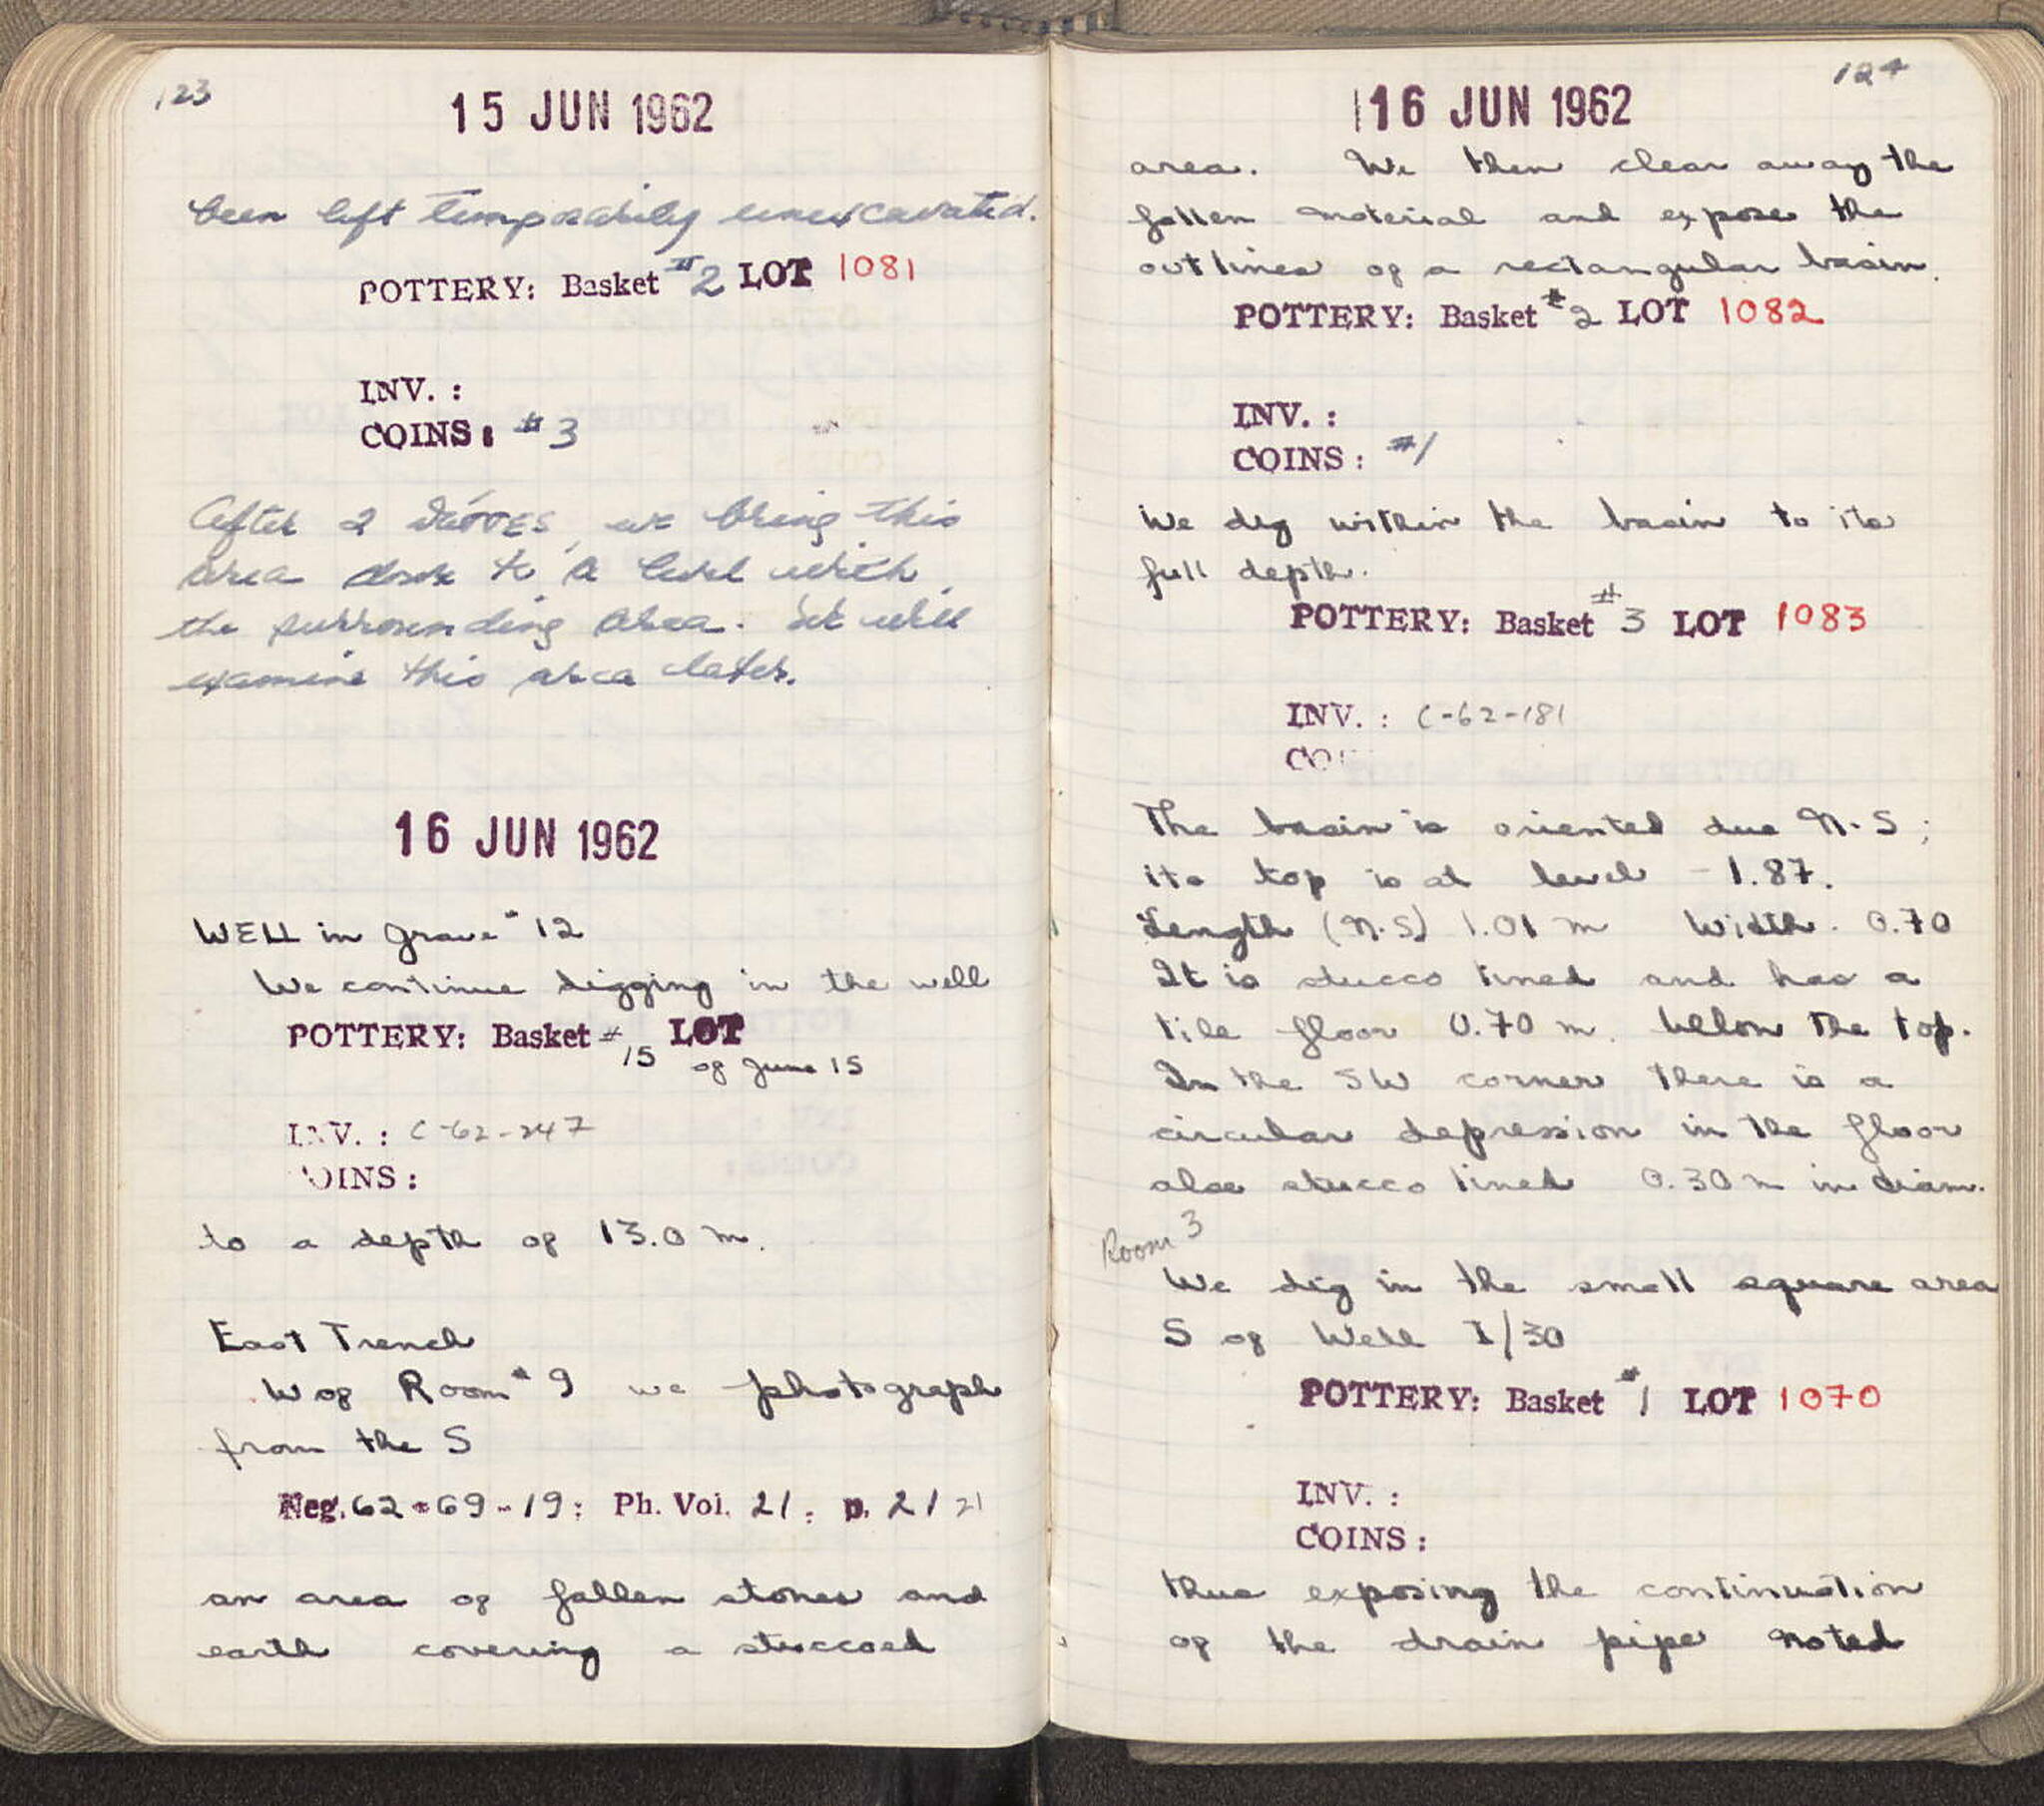 123
15 JUN 1962
been left temporarily unexcavated.
POTTERY: Basket #2 LOT 1081
INV. :
COINS: #3
After 2 we bring this
area down to a level with
the surrounding area. We will
examine this area later.
16 JUN 1962
WELL in Grave #12
We continue digging in the well
POTTERY: Basket #15 LOT
of June 15
INV. : C-62-247
COINS :
to a depth of 13.0 m.
East Trench
W of Room #9 we photograph
from the S
Neg. 62-69-19: Ph. Vol. 21. p. 21 21
an area of fallen stones and
earth covering a stuccoed
124
16 JUN 1962
area. We then clear away the
fallen material and expose the
outlines of a rectangular basin.
POTTERY: Basket #2 LOT 1082
INV. :
COINS : #1
We dig within the basin to its
full depth.
POTTERY: Basket #3 LOT 1083
INV. : C-62-181
CO
The basin is oriented due N-S;
its top is at level -1.87.
Length (N-S) 1.01 m Width. 0.70
It is stucco lined and has a
tile floor 0.70 m. below the top.
In the SW corner there is a
circular depression in the floor
also stucco lined 0.30 m in diam.
Room 3
We dig in the small square area
S of Well I/30
POTTERY: Basket #1 LOT 1070
INV. :
COINS :
thus exposing the continuation
of the drain pipe noted